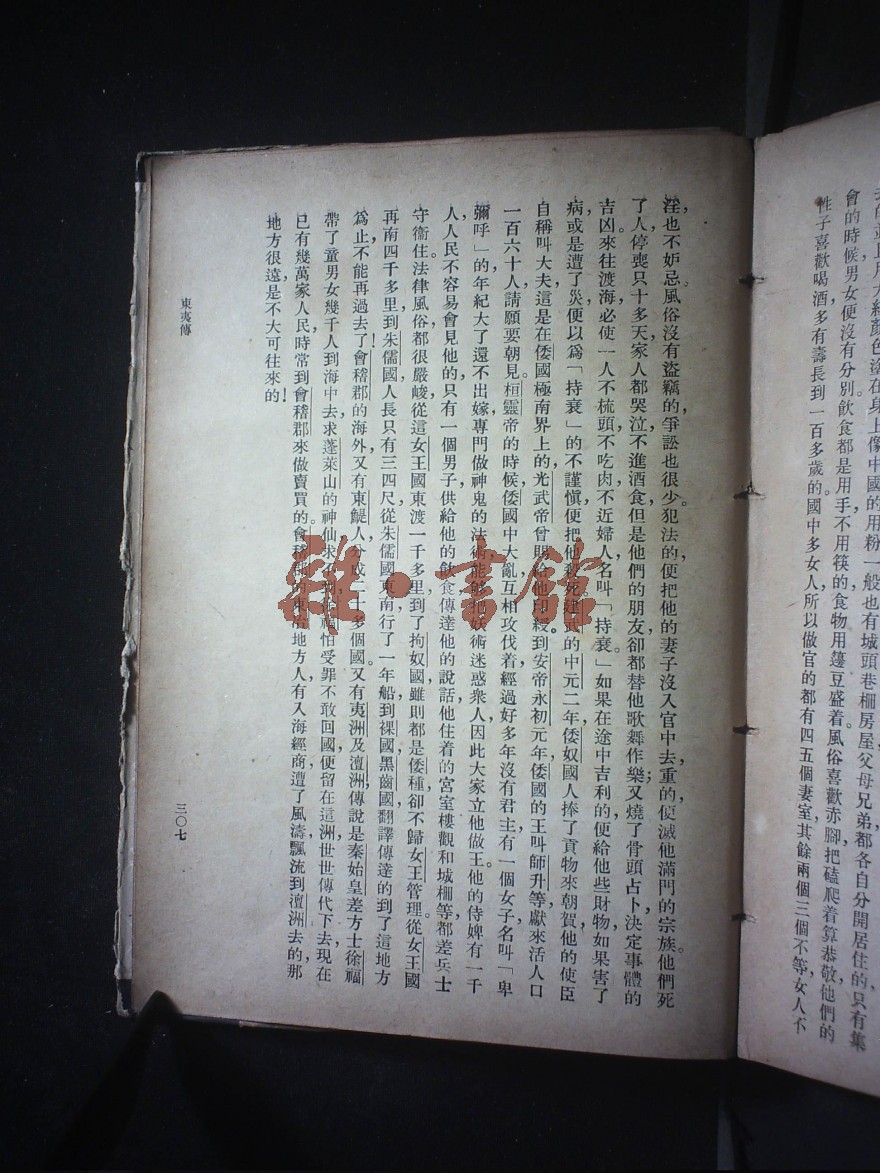 會的時候，男女便沒有分別。飲食都是用手，不用筷的，食物用籩豆盛着。風俗喜歡赤腳，把磕爬着算恭敬，他們的
性子喜歡喝酒，多有壽長到一百多歲的。國中多女人，所以做官的都有四五個妻室，其餘兩個三個不等，女人不
淫，也不妒忌。風俗沒有盜竊的，爭訟也很少。犯法的，便把他的妻子沒入官中去；重的，便滅他滿門的宗族。他們死
了人，停喪只十多天，家人都哭泣，不進酒食，但是他們的朋友，卻都替他歌舞作樂；又燒了骨頭占卜，決定事體的
吉凶。來往渡海，必使一人不梳頭，不吃肉，不近婦人，名叫「持衰。」如果在途中吉利的，便給他些財物，如果害了
病，或是遭了災，便以爲「持衰」的不謹愼，便把他殺死。建武的中元二年，倭奴國人捧了貢物來朝賀，他的使臣
自稱叫大夫，這是在倭國極南界上的，光武帝曾賜給他印綬。到安帝永初元年，倭國的王叫師升等，獻來活人口
一百六十人，請願要朝見。桓靈帝的時候，倭國中大亂，互相攻伐着，經過好多年，沒有君主，有一個女子，名叫「卑
彌呼」的，年紀大了，還不出嫁，專門做神鬼的法術，能够把妖術迷惑衆人，因此大家立他做王。他的侍婢有一千
人，人民不容易會見他的，只有一個男子，供給他的飲食，傳達他的說話，他住着的宮室樓觀和城柵等，都差兵士
守衞住，法律風俗都很嚴峻。從這女王國東渡一千多里，到了拘奴國，雖則都是倭種，卻不歸女王管理。從女王國
再南四千多里，到朱儒國，人長只有三四尺，從朱儒國東南，行了一年船，到裸國，黑齒國，翻譯傳達的，到了這地方
爲止，不能再過去了！會稽郡的海外，又有東鯷人，分成二十多個國。又有夷洲及澶洲，傳說是秦始皇差方士徐福，
帶了童男女幾千人，到海中去，求蓬萊山的神仙，求不到，徐福怕受罪不敢回國，便留在這洲，世世傳代下去，現在
已有幾萬家人民，時常到會稽郡來做賣買的。會稽郡的東冶地方人，有入海經商，遭了風濤，飄流到澶洲去的，那
地方很遠，是不大可往來的！
東夷傳
三〇七
雜·書館